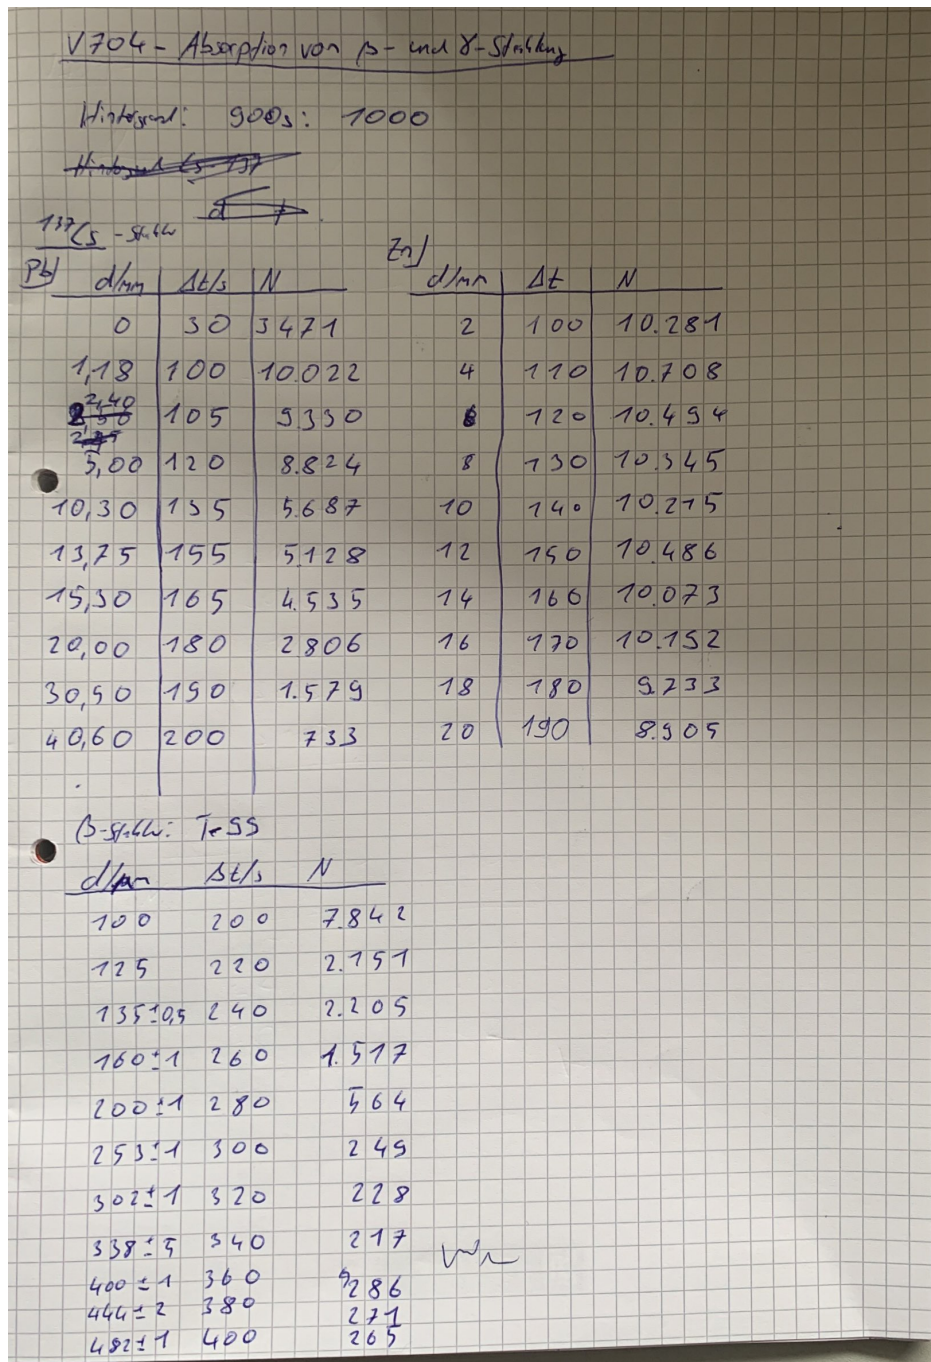 V704 - Absorption von β- und γ-Strahlung
Hintergrund: 900s: 1000
137Cs - Strahler
Pb) d/mm Δt/s N
0 30 3471
1,18 100 10.022
2,40 105 9330
5,00 120 8.824
10,30 135 5.687
13,75 155 5.128
15,30 165 4.535
20,00 180 2806
30,50 190 1.579
40,60 200 733
Zn) d/mm Δt N
2 100 10.281
4 110 10.708
6 120 10.494
8 130 10.345
10 140 10.215
12 150 10.486
14 160 10.073
16 170 10.152
18 180 9.233
20 190 8.905
β-Strahler: Tc99
d/μm Δt/s N
100 200 7.842
125 220 2.151
135±0,5 240 2.205
160±1 260 1.517
200±1 280 564
253±1 300 249
302±1 320 228
338±5 340 217
400±1 360 286
444±2 380 271
482±1 400 265